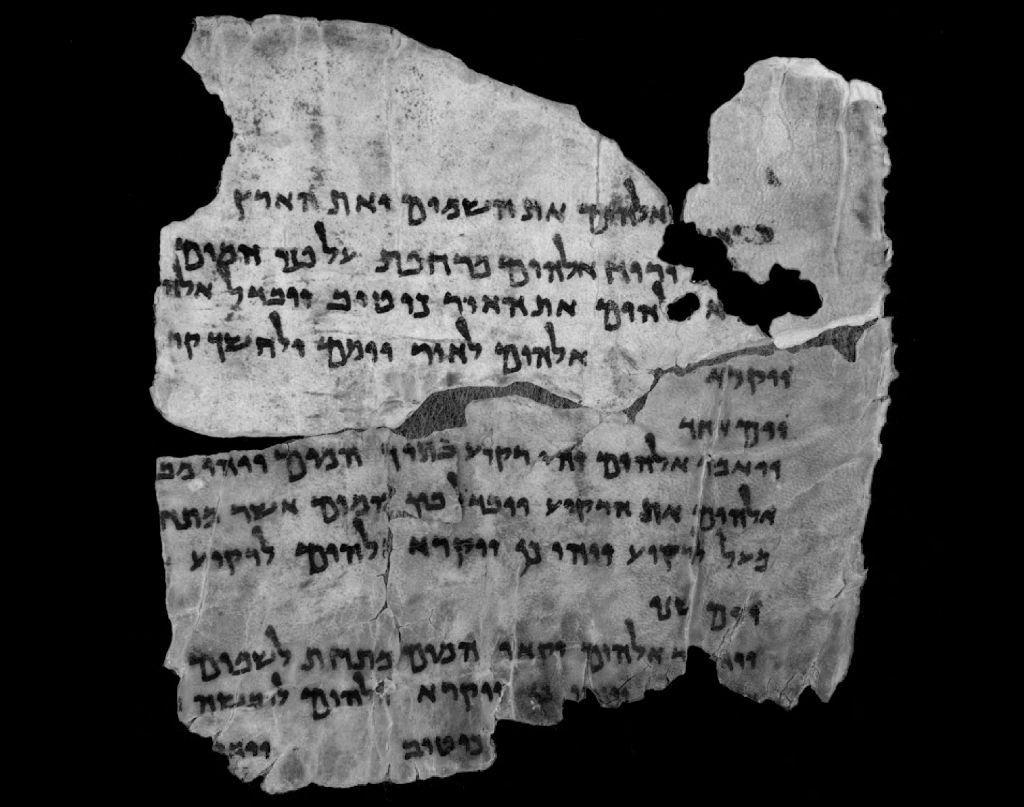 אלהים את השמים ואת הארץ
ורוח אלהים מרחפת על פני המים
אלהים את האור כי טוב ויבדל אלה
ויקרא אלהים לאור יומם ולחשך קר
יום אחד
ויאמר אלהים יהי רקיע בתוך המים ויהי מב
אלהים את הרקיע ויבדל בין המים אשר מתח
מעל לרקיע ויהי כן ויקרא אלהים לרקיע
יום שני
אלהים יקאו המים מתחת לשמים
כן ויקרא אלהים ליבשה
כי טוב